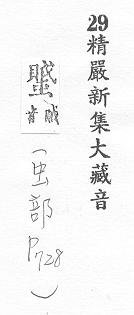 29精嚴新集大藏音
賊
(虫部 P728)